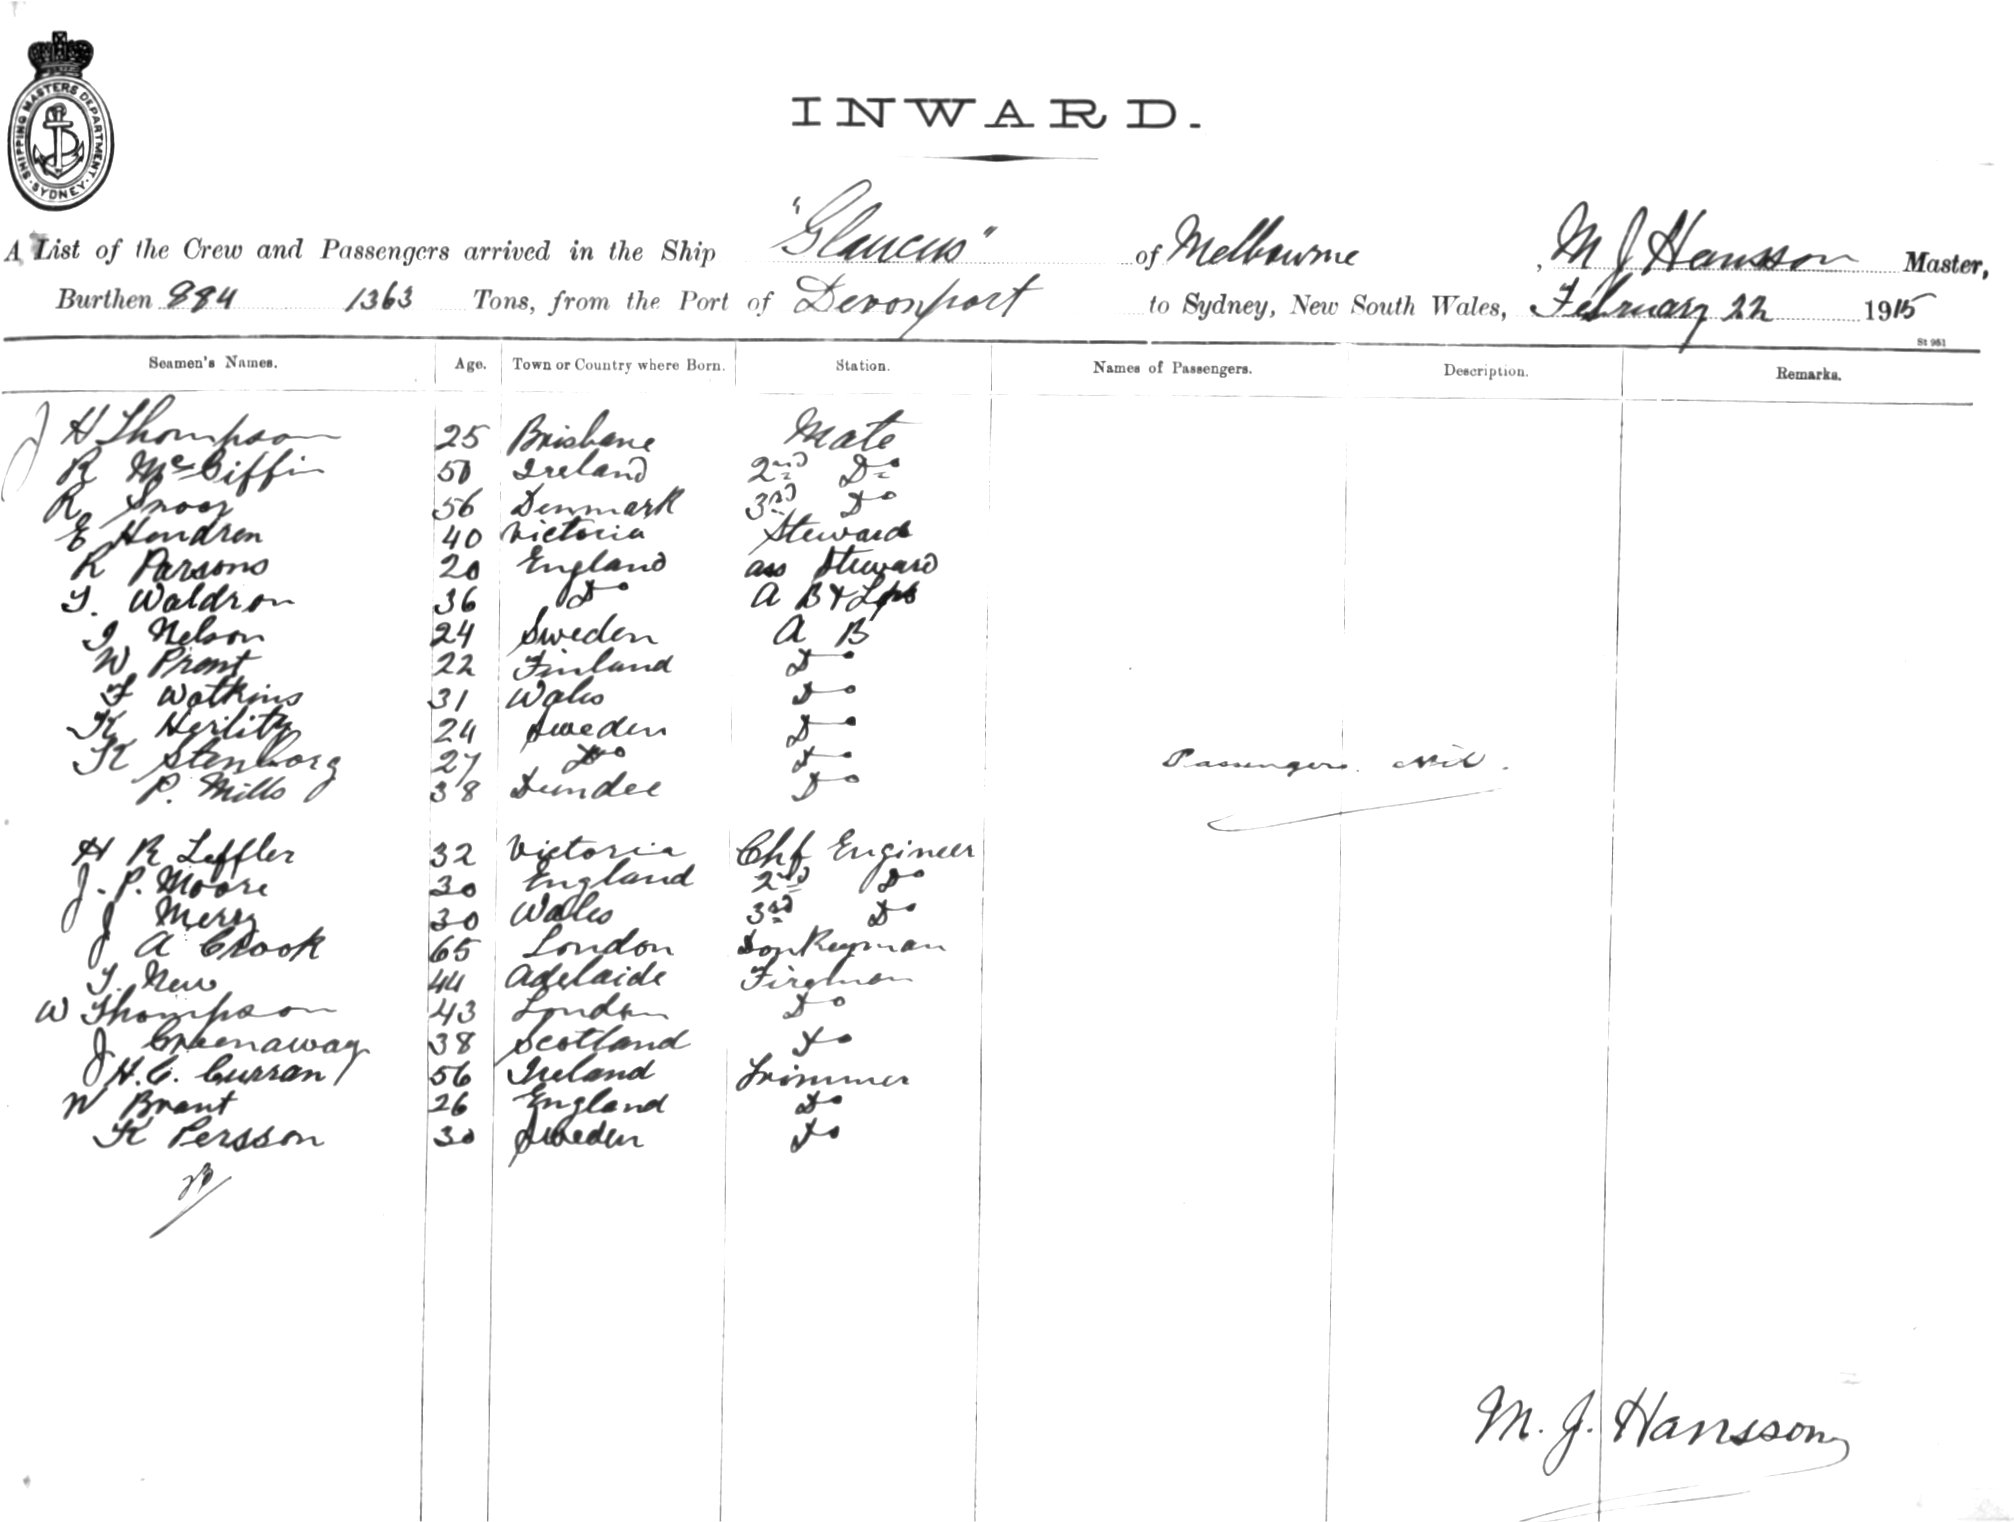 SHIPPING MASTERS DEPARTMENT. SYDNEY
INWARD.
A List of the Crew and Passengers arrived in the Ship "Glaucus" of Melbourne, M J Hansson Master,
Burthen 884 1363 Tons, from the Port of Devonport to Sydney, New South Wales, February 22 1915
St 961
Seamen's Names. Age. Town or Country where Born. Station. Names of Passengers. Description. Remarks.
J H Thompson 25 Brisbane Mate
R McGiffin 50 Ireland 2nd Do
R Snoog 56 Denmark 3rd Do
E Hendren 40 Victoria Steward
R Parsons 20 England ass Steward
T. Waldron 36 Do A B & Lps
I Nelson 24 Sweden A B
W Pront 22 Finland Do
F Watkins 31 Wales Do
K Herlitz 24 Sweden Do
K Stenborg 27 Do Do
Passengers Nil.
P. Mills 38 Dundee Do
H R Leffler 32 Victoria Chf Engineer
J. P. Moore 30 England 2nd Do
J Merry 30 Wales 3rd Do
J A Crook 65 London Donkeyman
T. New 44 Adelaide Fireman
W Thompson 43 London Do
J Greenaway 38 Scotland Do
J H. C. Curran 56 Ireland Trimmer
W Brant 26 England Do
K Persson 30 Sweden Do
M. J. Hansson